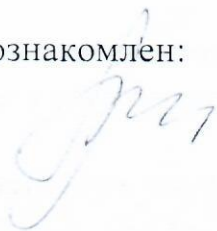 ознакомлен: